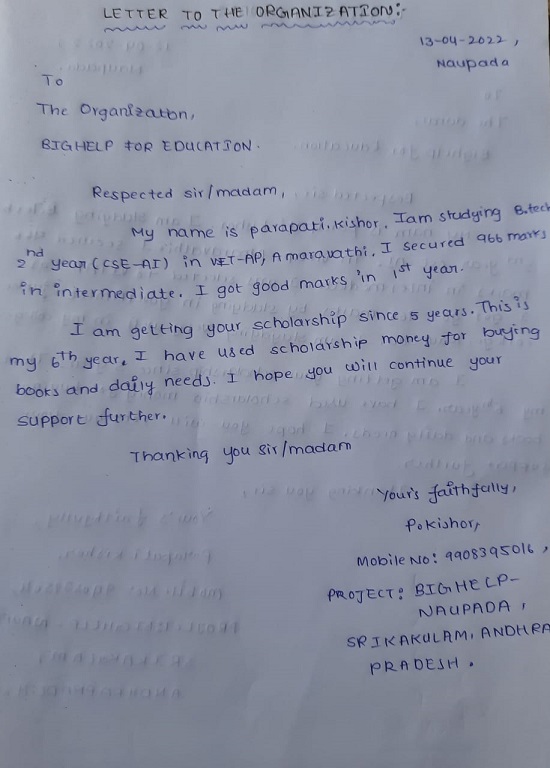 LETTER TO THE ORGANIZATION:-
13-04-2022,
Naupada
To
The Organization,
BIGHELP FOR EDUCATION.
Respected sir/madam,
My name is parapati.kishor. Iam studying B.tech
2nd year (CSE-AI) in VIT-AP, Amaravathi. I secured 966 marks
in intermediate. I got good marks in 1st year.
I am getting your scholarship since 5 years. This is
my 6th year. I have used scholarship money for buying
books and daily needs. I hope you will continue your
support further.
Thanking you sir/madam
Your's faithfully,
P.Kishor,
Mobile No: 9908395016,
PROJECT: BIGHELP-
NAUPADA,
SRIKAKULAM, ANDHRA
PRADESH.